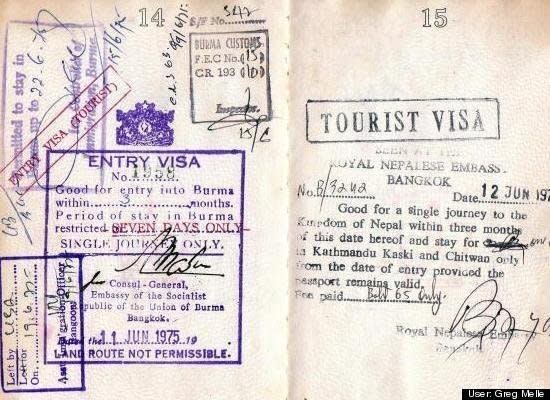 14
S/F No.
BURMA CUSTOMS
F.E.C No. (15)
CR. 193 (10)
Inspector.
15/6/75
mitted to stay in
up to 22.6.
Burma.
ENTRY VISA (TOURIST)
ENTRY VISA
No. 1958
Good for entry into Burma
within 3 months.
Period of stay in Burma
restricted SEVEN DAYS ONLY
SINGLE JOURNEY ONLY.
Consul-General,
Embassy of the Socialist
Republic of the Union of Burma
Bangkok.
the 11 JUN 1975 19
LAND ROUTE NOT PERMISSIBLE.
Left by
Left for
On
Rangoon
15
TOURIST VISA
SEEN AT THE
ROYAL NEPALESE EMBASS
BANGKOK
No. Date 12 JUN 197
Good for a single journey to the
Kingdom of Nepal within three months
of this date hereof and stay for
in Kathmandu Kaski and Chitwan only
from the date of entry provided the
passport remains valid.
Fee paid only.
Royal Nepalese
Bangkok
User: Greg Melle